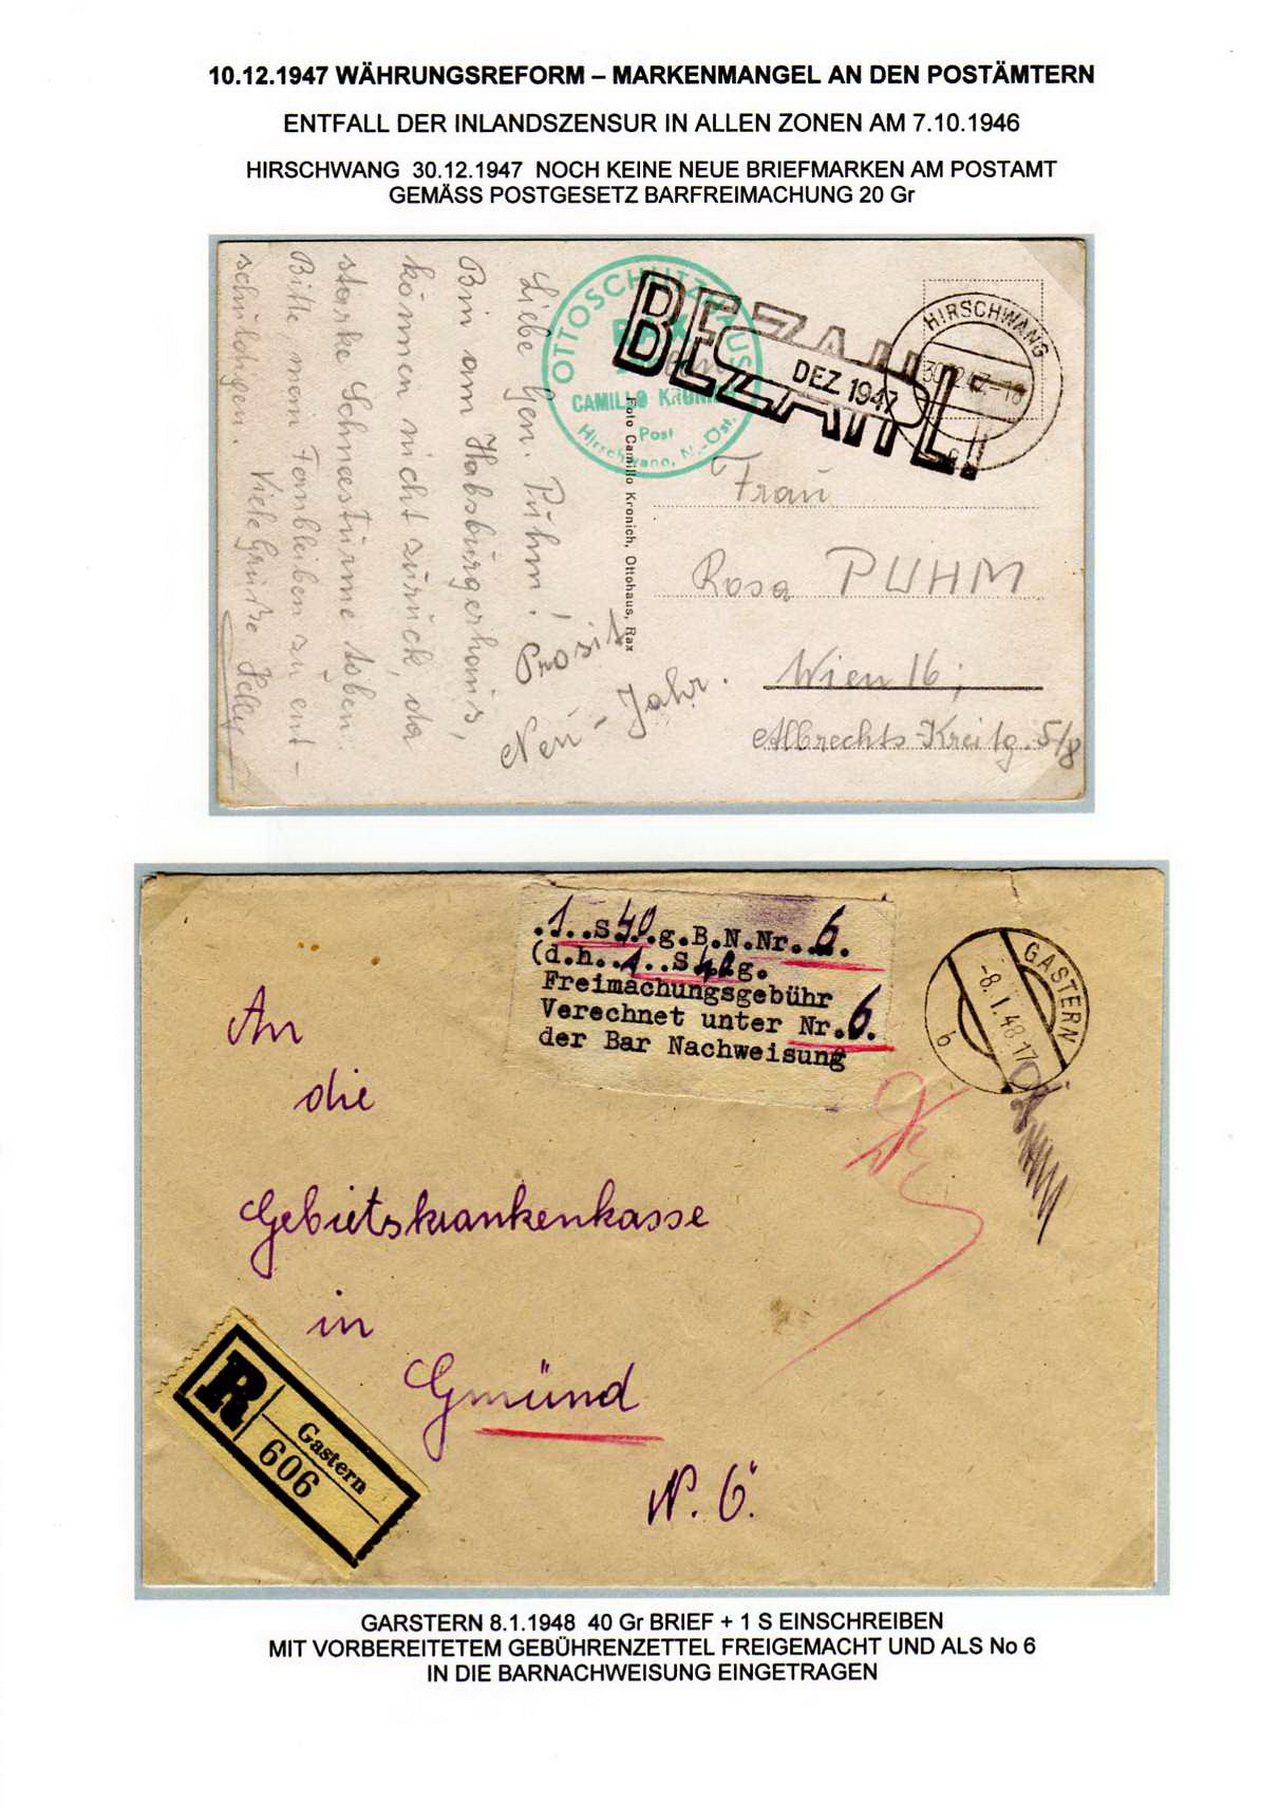 10.12.1947 WÄHRUNGSREFORM – MARKENMANGEL AN DEN POSTÄMTERN
ENTFALL DER INLANDSZENSUR IN ALLEN ZONEN AM 7.10.1946
HIRSCHWANG 30.12.1947 NOCH KEINE NEUE BRIEFMARKEN AM POSTAMT
GEMÄSS POSTGESETZ BARFREIMACHUNG 20 Gr
Liebe Gen. Puhm!
Bin am Habsburgerhaus,
können nicht zurück, da
starke Schneestürme toben.
Bitte, mein Fernbleiben zu ent-
schuldigen. Viele Grüße
Prosit
Neu-Jahr.
OTTOSCHUTZHAUS
RAX
CAMILLO KRONICH
Post
Hirschwang, N.-Öst.
Foto Camillo Kronich, Ottohaus, Rax
BEZAHLT
DEZ 1947
HIRSCHWANG
Frau
Rosa PUHM
Wien 16;
Albrechts-Kreitg. 5/8
.1..S40.g.B.N.Nr..6.
(d.h..1..S40g.
Freimachungsgebühr
Verechnet unter Nr.6.
der Bar Nachweisung
GASTERN
-8.I.48-17
b
An
die
Gebietskrankenkasse
in
Gmünd
N.Ö.
R
Gastern
606
GARSTERN 8.1.1948 40 Gr BRIEF + 1 S EINSCHREIBEN
MIT VORBEREITETEM GEBÜHRENZETTEL FREIGEMACHT UND ALS No 6
IN DIE BARNACHWEISUNG EINGETRAGEN